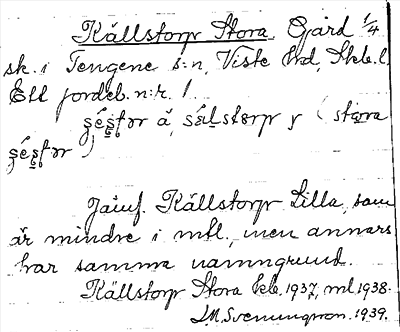 Källstorp Stora Gård 1/4
sk. i Tengene s:n, Viste hrd, Skbl.
Ett jordeb. n:r. 1.
Jämf. Källstorp Lilla, som
är mindre i mtl., men annars
har samma namngrund.
Källstorp Stora bl. 1937, ml 1938.
J.M. Svenungson. 1939.